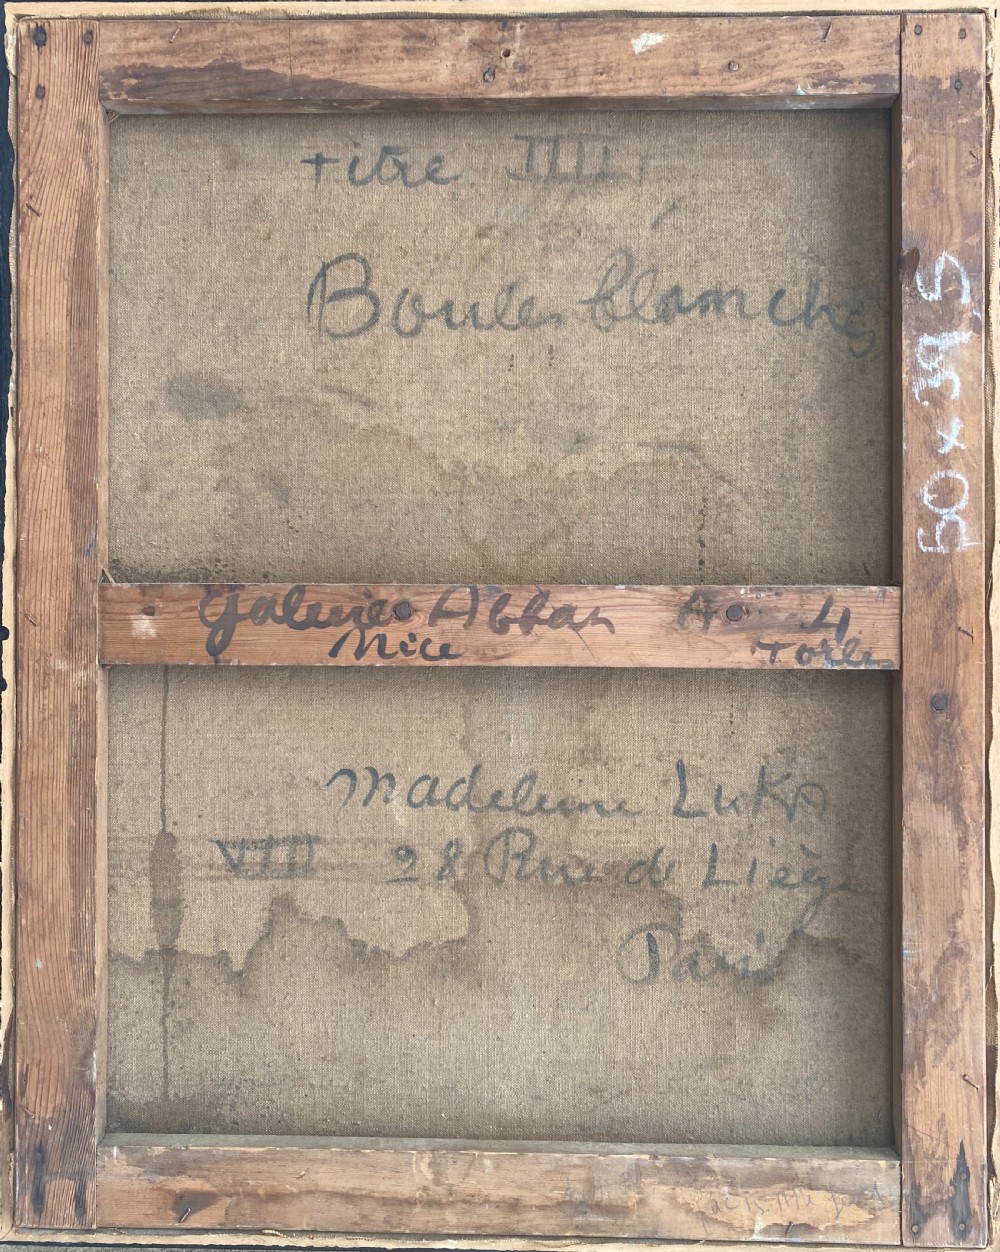 titre IIII
Boules blanches
50 x 39,5
Galerie Abbas A 4
Nice Toiles
Madeleine LuKA
VIII 28 Rue de Liège
Paris